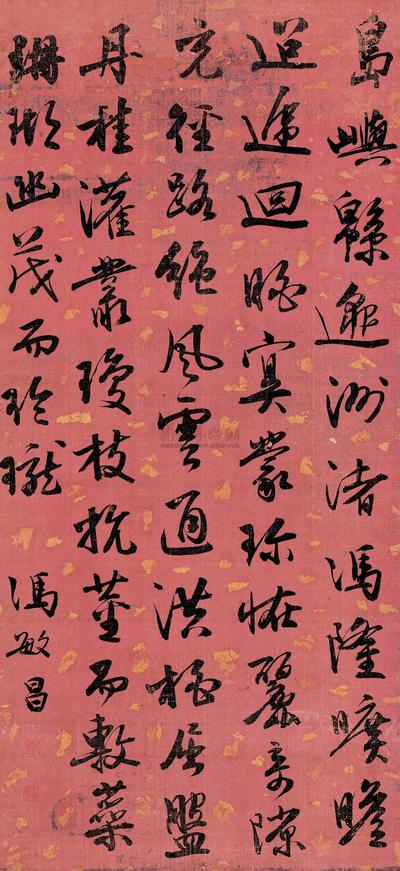 島嶼緜邈洲渚馮隆曠瞻
迢遞迴眺冥蒙珍怪麗奇隙
充徑路絕風雲通洪桃屈盤
丹桂灌叢瓊枝抗莖而敷蕊
珊瑚幽茂而玲瓏
馮敏昌